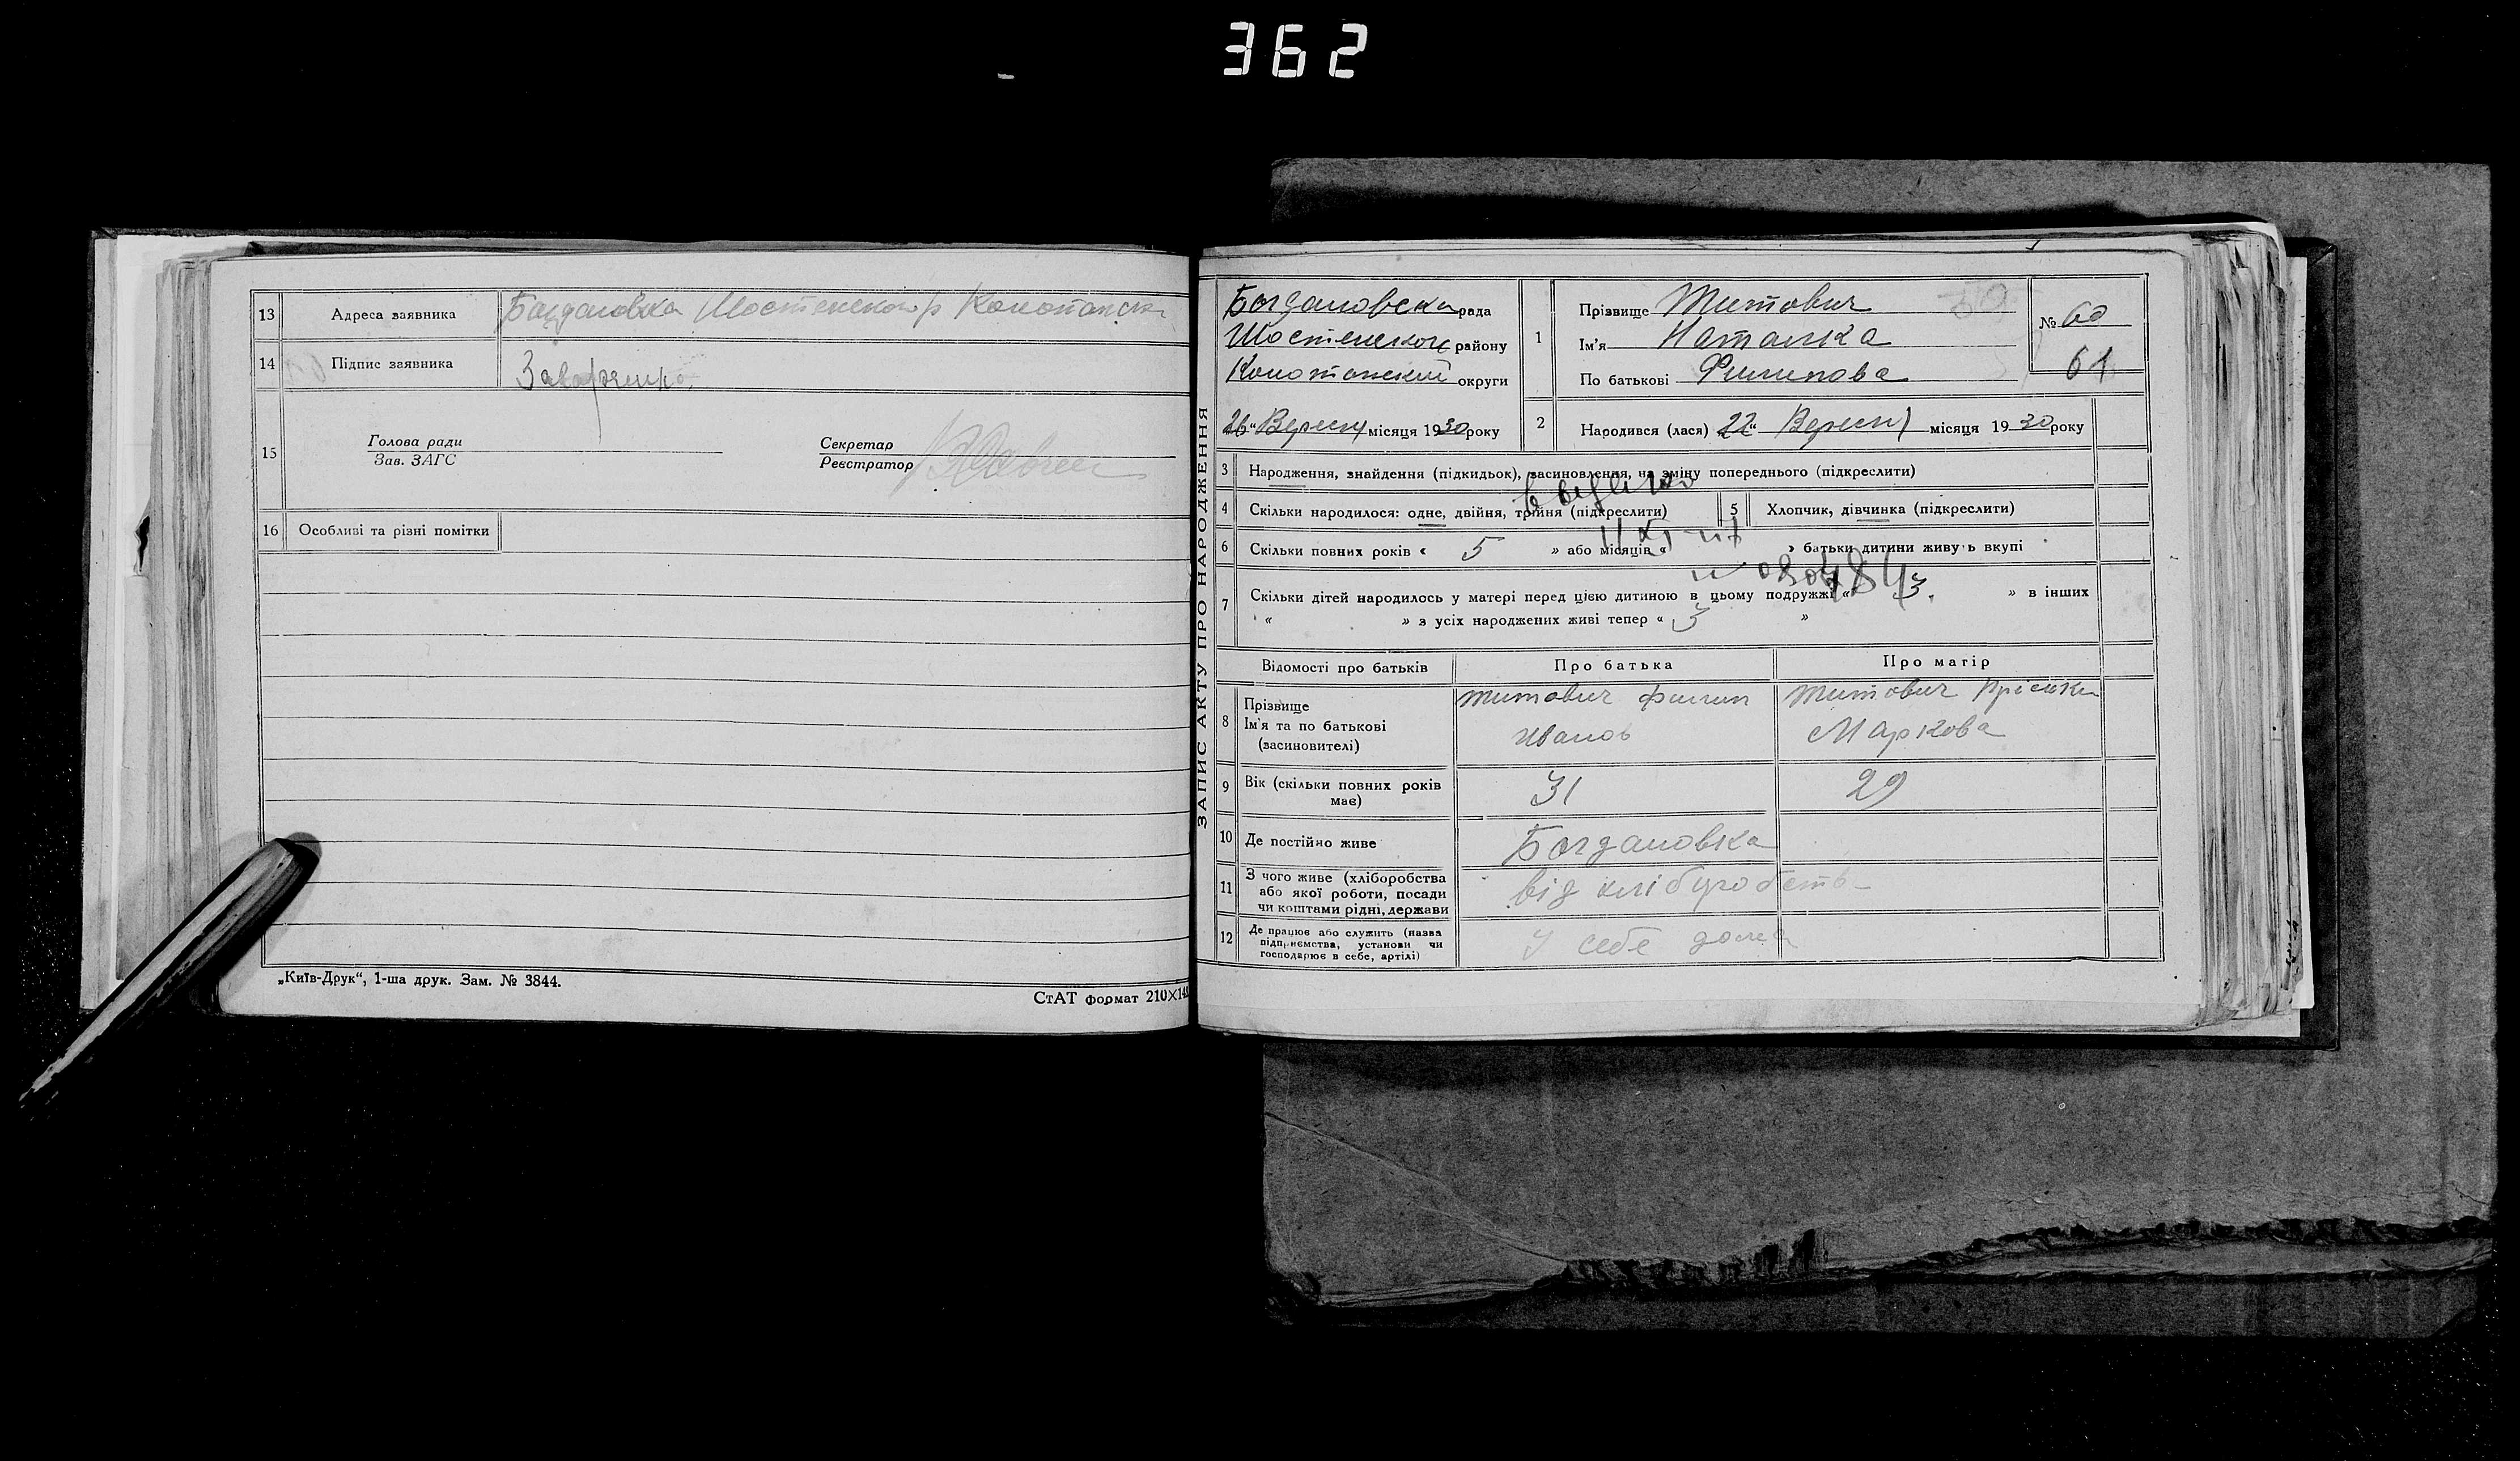 362
13 Адреса заявника Богдановка Шостенского р Конотопск
14 Підпис заявника
15 Голова ради
Зав. ЗАГС
Секретар
Реєстратор
16 Особливі та різні помітки
„Київ-Друк“, 1-ша друк. Зам. № 3844.
СтАТ формат 210×148
ЗАПИС АКТУ ПРО НАРОДЖЕННЯ
Богдановска рада
Шостенского району
Конотопский округи
26 " Вересня місяця 1930 року
1 Прізвище Титович
Ім'я Наталка
По батькові Филипова
№ 60
61
2 Народився (лася) 22 " Вересня місяця 1930 року
3 Народження, знайдення (підкидьок), засиновлення, на зміну попереднього (підкреслити)
4 Скільки народилося: одне, двійня, трійня (підкреслити) 5 Хлопчик, дівчинка (підкреслити)
6 Скільки повних років « 5 » або місяців « » батьки дитини живуть вкупі
7 Скільки дітей народилось у матері перед цією дитиною в цьому подружжі « 3. » в інших
« » з усіх народжених живі тепер « 3 »
Відомості про батьків Про батька Про матір
8 Прізвище
Ім'я та по батькові
(засиновителі)
Титович Филип
Иванов
Титович Пріська
Маркова
9 Вік (скільки повних років має) 31 29
10 Де постійно живе Богдановка
11 З чого живе (хліборобства
або якої роботи, посади
чи коштами рідні, держави
від
12 Де працює або служить (назва
підприємства, установи чи
господарює в себе, артілі)
У себе дома